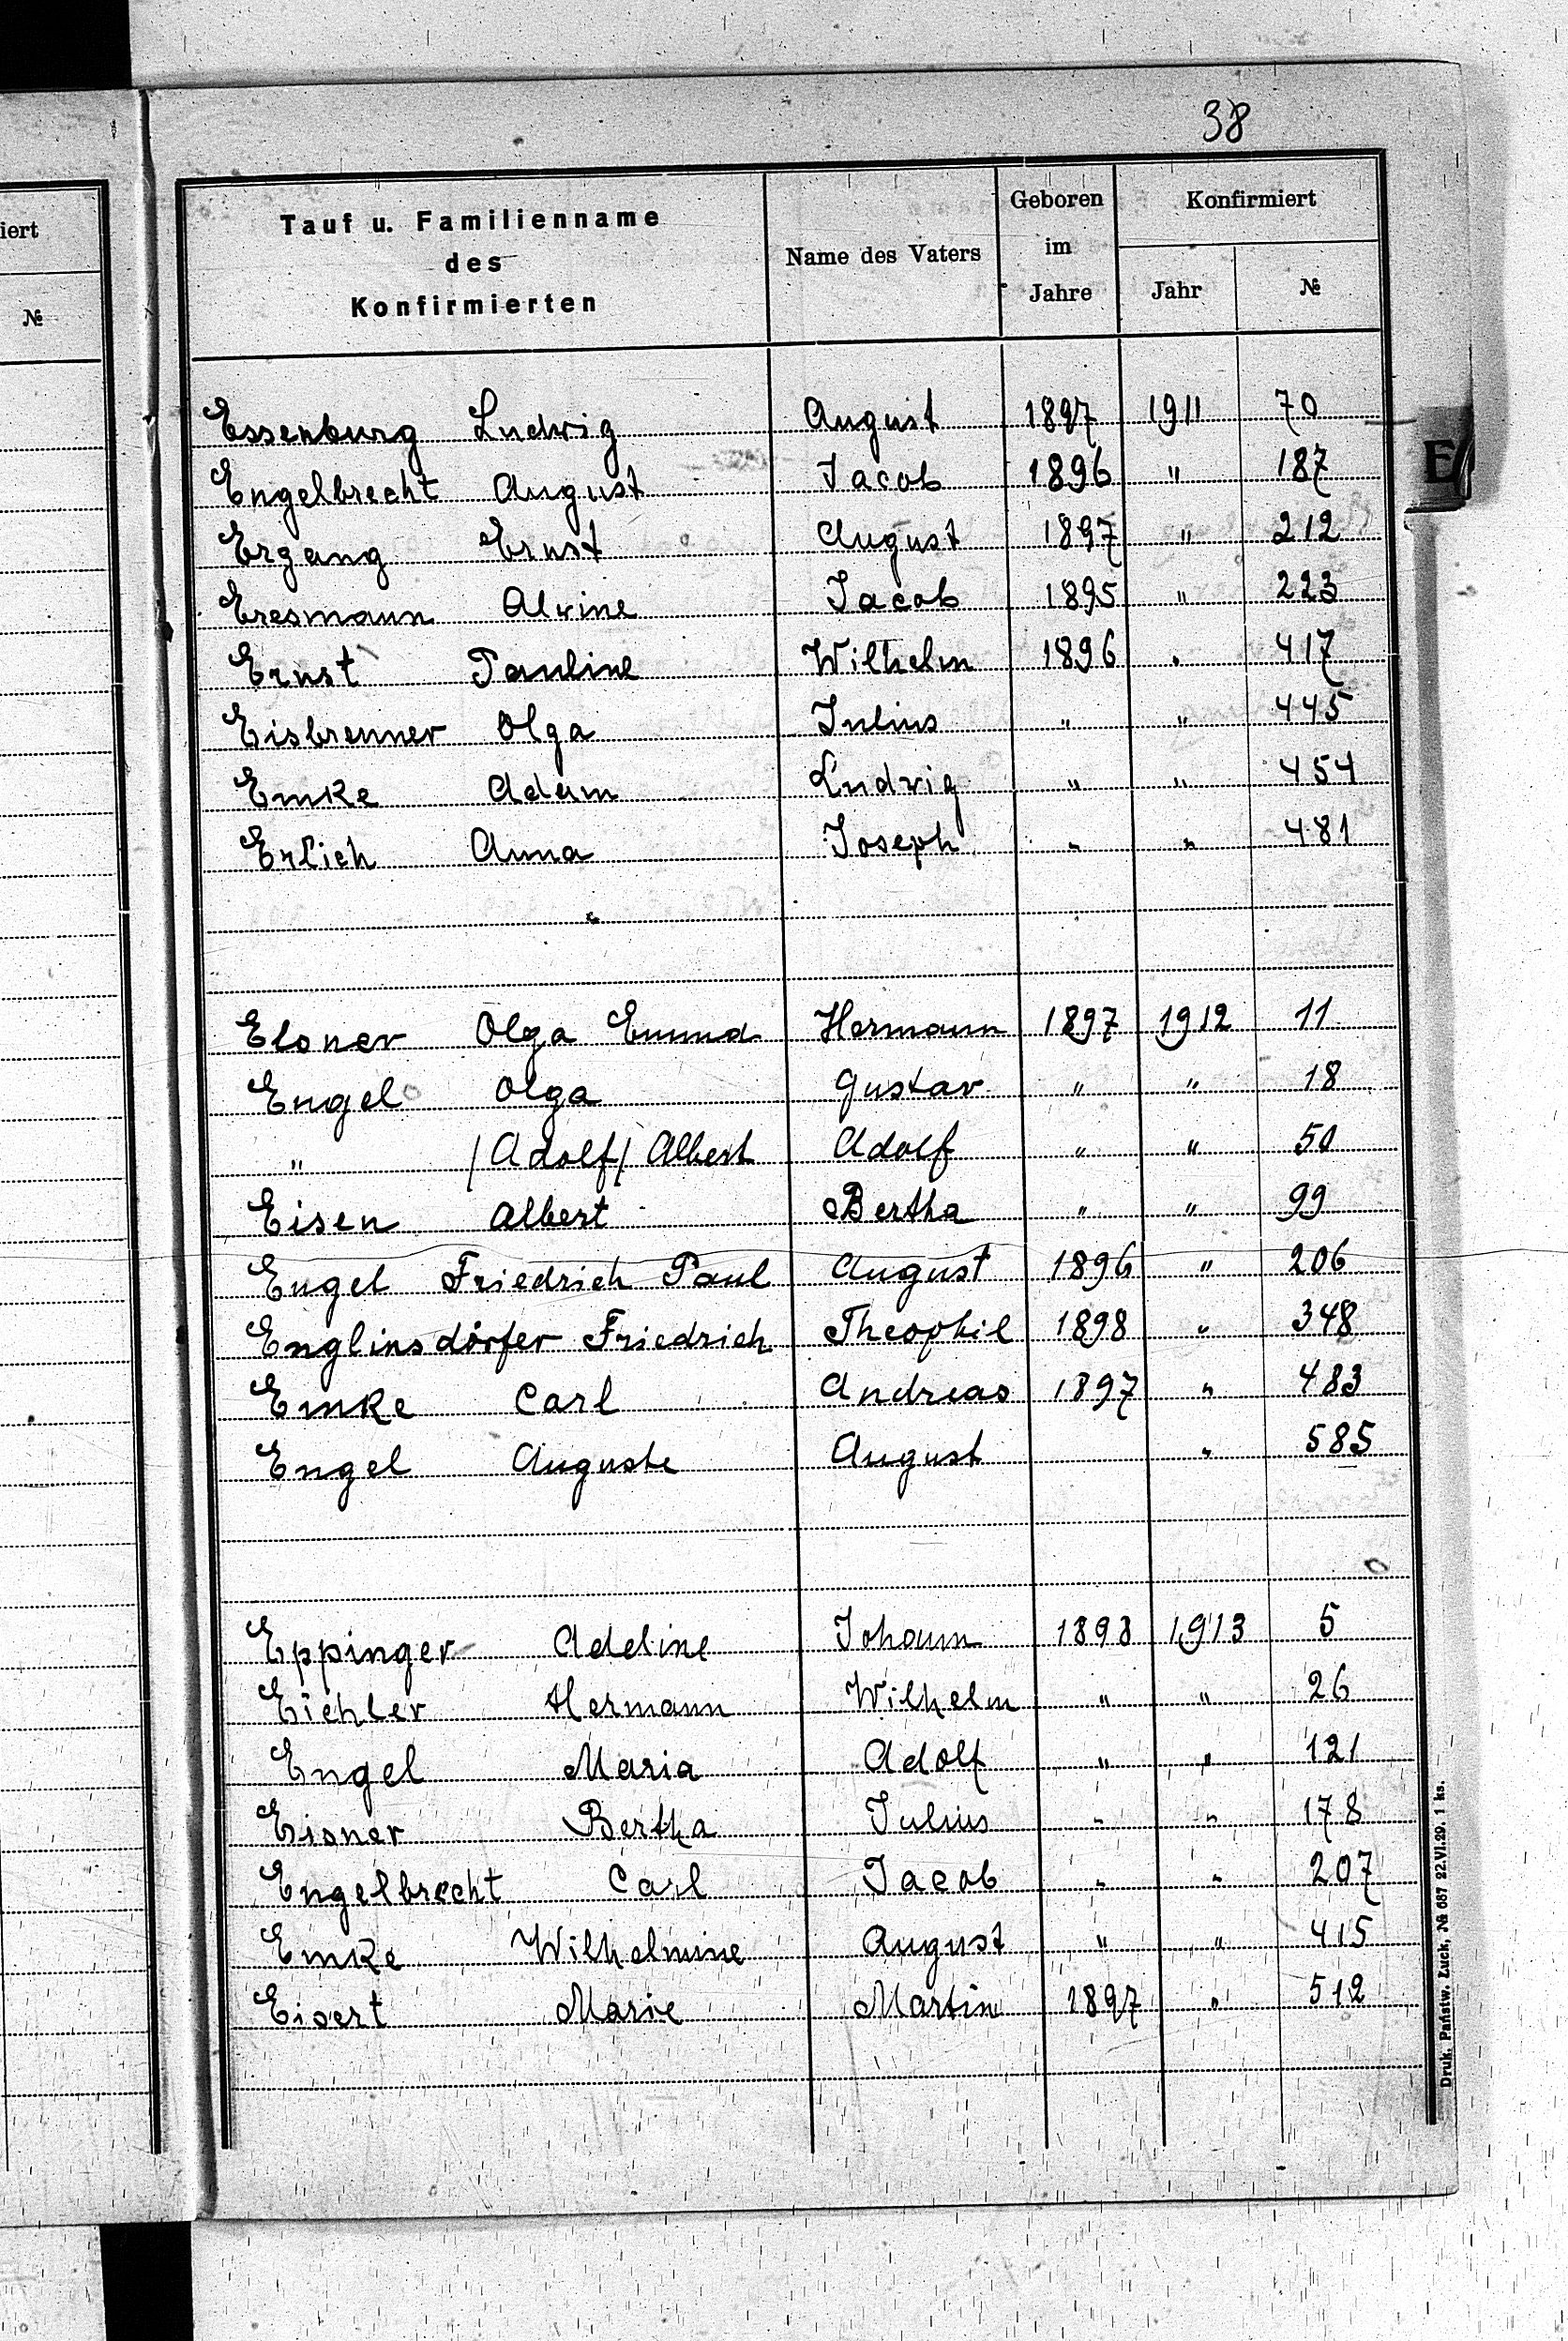 38
iert
№
Tauf u. Familienname
des
Konfirmierten
Name des Vaters
Geboren
im
Jahre
Konfirmiert
Jahr
№
Essenburg Ludwig August 1897 1911 70
Engelbrecht August Jacob 1896 " 187
Ergang Ernst August 1897 " 212
Eresmann Alvine Jacob 1895 " 223
Ernst Pauline Wilhelm 1896 " 417
Eisbrenner Olga Julius " " 445
Emke Adam Ludwig " " 454
Erlich Anna Joseph " " 481
Elsner Olga Emma Hermann 1897 1912 11
Engel Olga Gustav " " 18
" /Adolf/ Albert Adolf " " 50
Eisen Albert Bertha " " 99
Engel Friedrich Paul August 1896 " 206
Englinsdörfer Friedrich Theophil 1898 " 348
Emke Carl Andreas 1897 " 483
Engel Auguste August " 585
Eppinger Adeline Johann 1898 1913 5
Eichler Hermann Wilhelm " " 26
Engel Maria Adolf " " 121
Eisner Bertha Julius " " 178
Engelbrecht Carl Jacob " " 207
Emke Wilhelmine August " " 415
Eisert Marie Martin 1897 " 512
E
Druk. Państw. Łuck, № 687 22.VI.29. 1 ks.